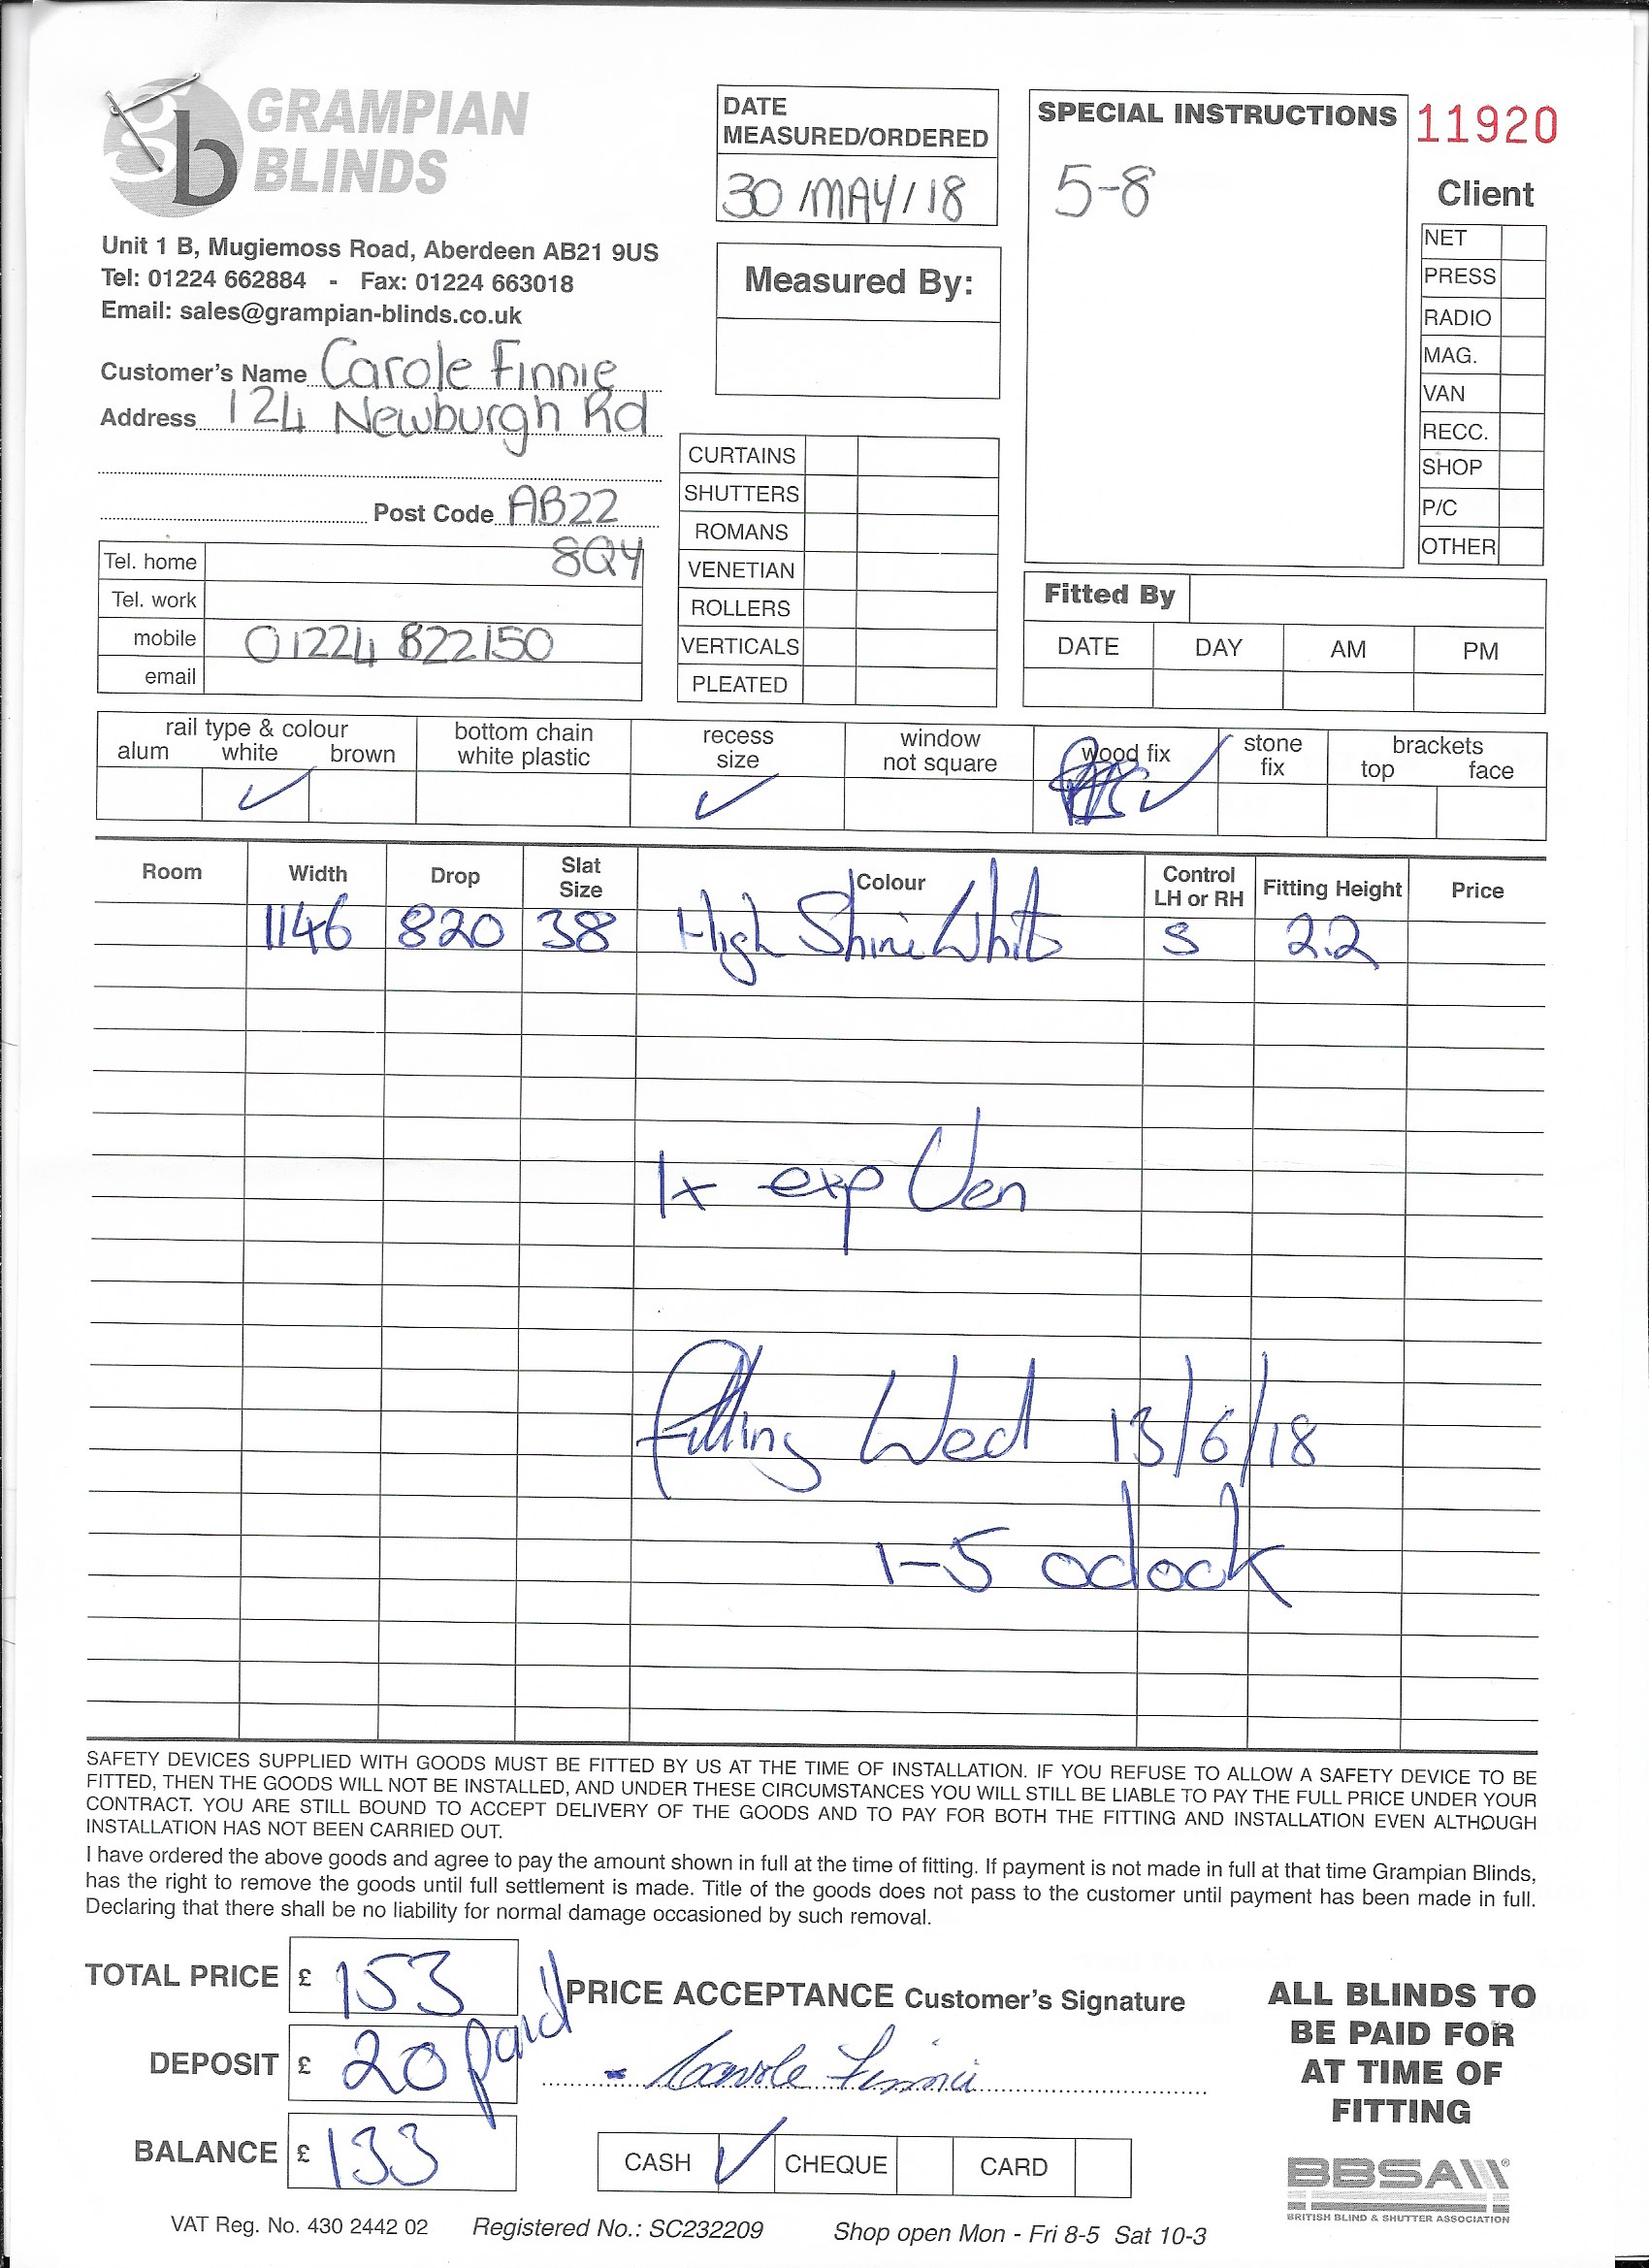 gb GRAMPIAN BLINDS
Unit 1 B, Mugiemoss Road, Aberdeen AB21 9US
Tel: 01224 662884 - Fax: 01224 663018
Email: sales@grampian-blinds.co.uk
Customer's Name Carole Finnie
Address 124 Newburgh Rd
Post Code AB22
8QY
Tel. home
Tel. work
mobile 01224 822150
email
DATE
MEASURED/ORDERED
30/MAY/18
Measured By:
CURTAINS
SHUTTERS
ROMANS
VENETIAN
ROLLERS
VERTICALS
PLEATED
SPECIAL INSTRUCTIONS
5-8
11920
Client
NET
PRESS
RADIO
MAG.
VAN
RECC.
SHOP
P/C
OTHER
Fitted By
DATE DAY AM PM
rail type & colour
alum white brown
✓
bottom chain
white plastic
recess
size
✓
window
not square
wood fix
✓
stone
fix
brackets
top face
Room Width Drop Slat Size Colour Control LH or RH Fitting Height Price
1146 820 38 High Shine White S 2.2
1x exp Ven
fitting Wed 13/6/18
1-5 oclock
SAFETY DEVICES SUPPLIED WITH GOODS MUST BE FITTED BY US AT THE TIME OF INSTALLATION. IF YOU REFUSE TO ALLOW A SAFETY DEVICE TO BE
FITTED, THEN THE GOODS WILL NOT BE INSTALLED, AND UNDER THESE CIRCUMSTANCES YOU WILL STILL BE LIABLE TO PAY THE FULL PRICE UNDER YOUR
CONTRACT. YOU ARE STILL BOUND TO ACCEPT DELIVERY OF THE GOODS AND TO PAY FOR BOTH THE FITTING AND INSTALLATION EVEN ALTHOUGH
INSTALLATION HAS NOT BEEN CARRIED OUT.
I have ordered the above goods and agree to pay the amount shown in full at the time of fitting. If payment is not made in full at that time Grampian Blinds,
has the right to remove the goods until full settlement is made. Title of the goods does not pass to the customer until payment has been made in full.
Declaring that there shall be no liability for normal damage occasioned by such removal.
TOTAL PRICE £ 153
DEPOSIT £ 20 paid
BALANCE £ 133
PRICE ACCEPTANCE Customer's Signature
Carole Finnie
CASH ✓ CHEQUE CARD
ALL BLINDS TO
BE PAID FOR
AT TIME OF
FITTING
BBSA
BRITISH BLIND & SHUTTER ASSOCIATION
VAT Reg. No. 430 2442 02 Registered No.: SC232209 Shop open Mon - Fri 8-5 Sat 10-3